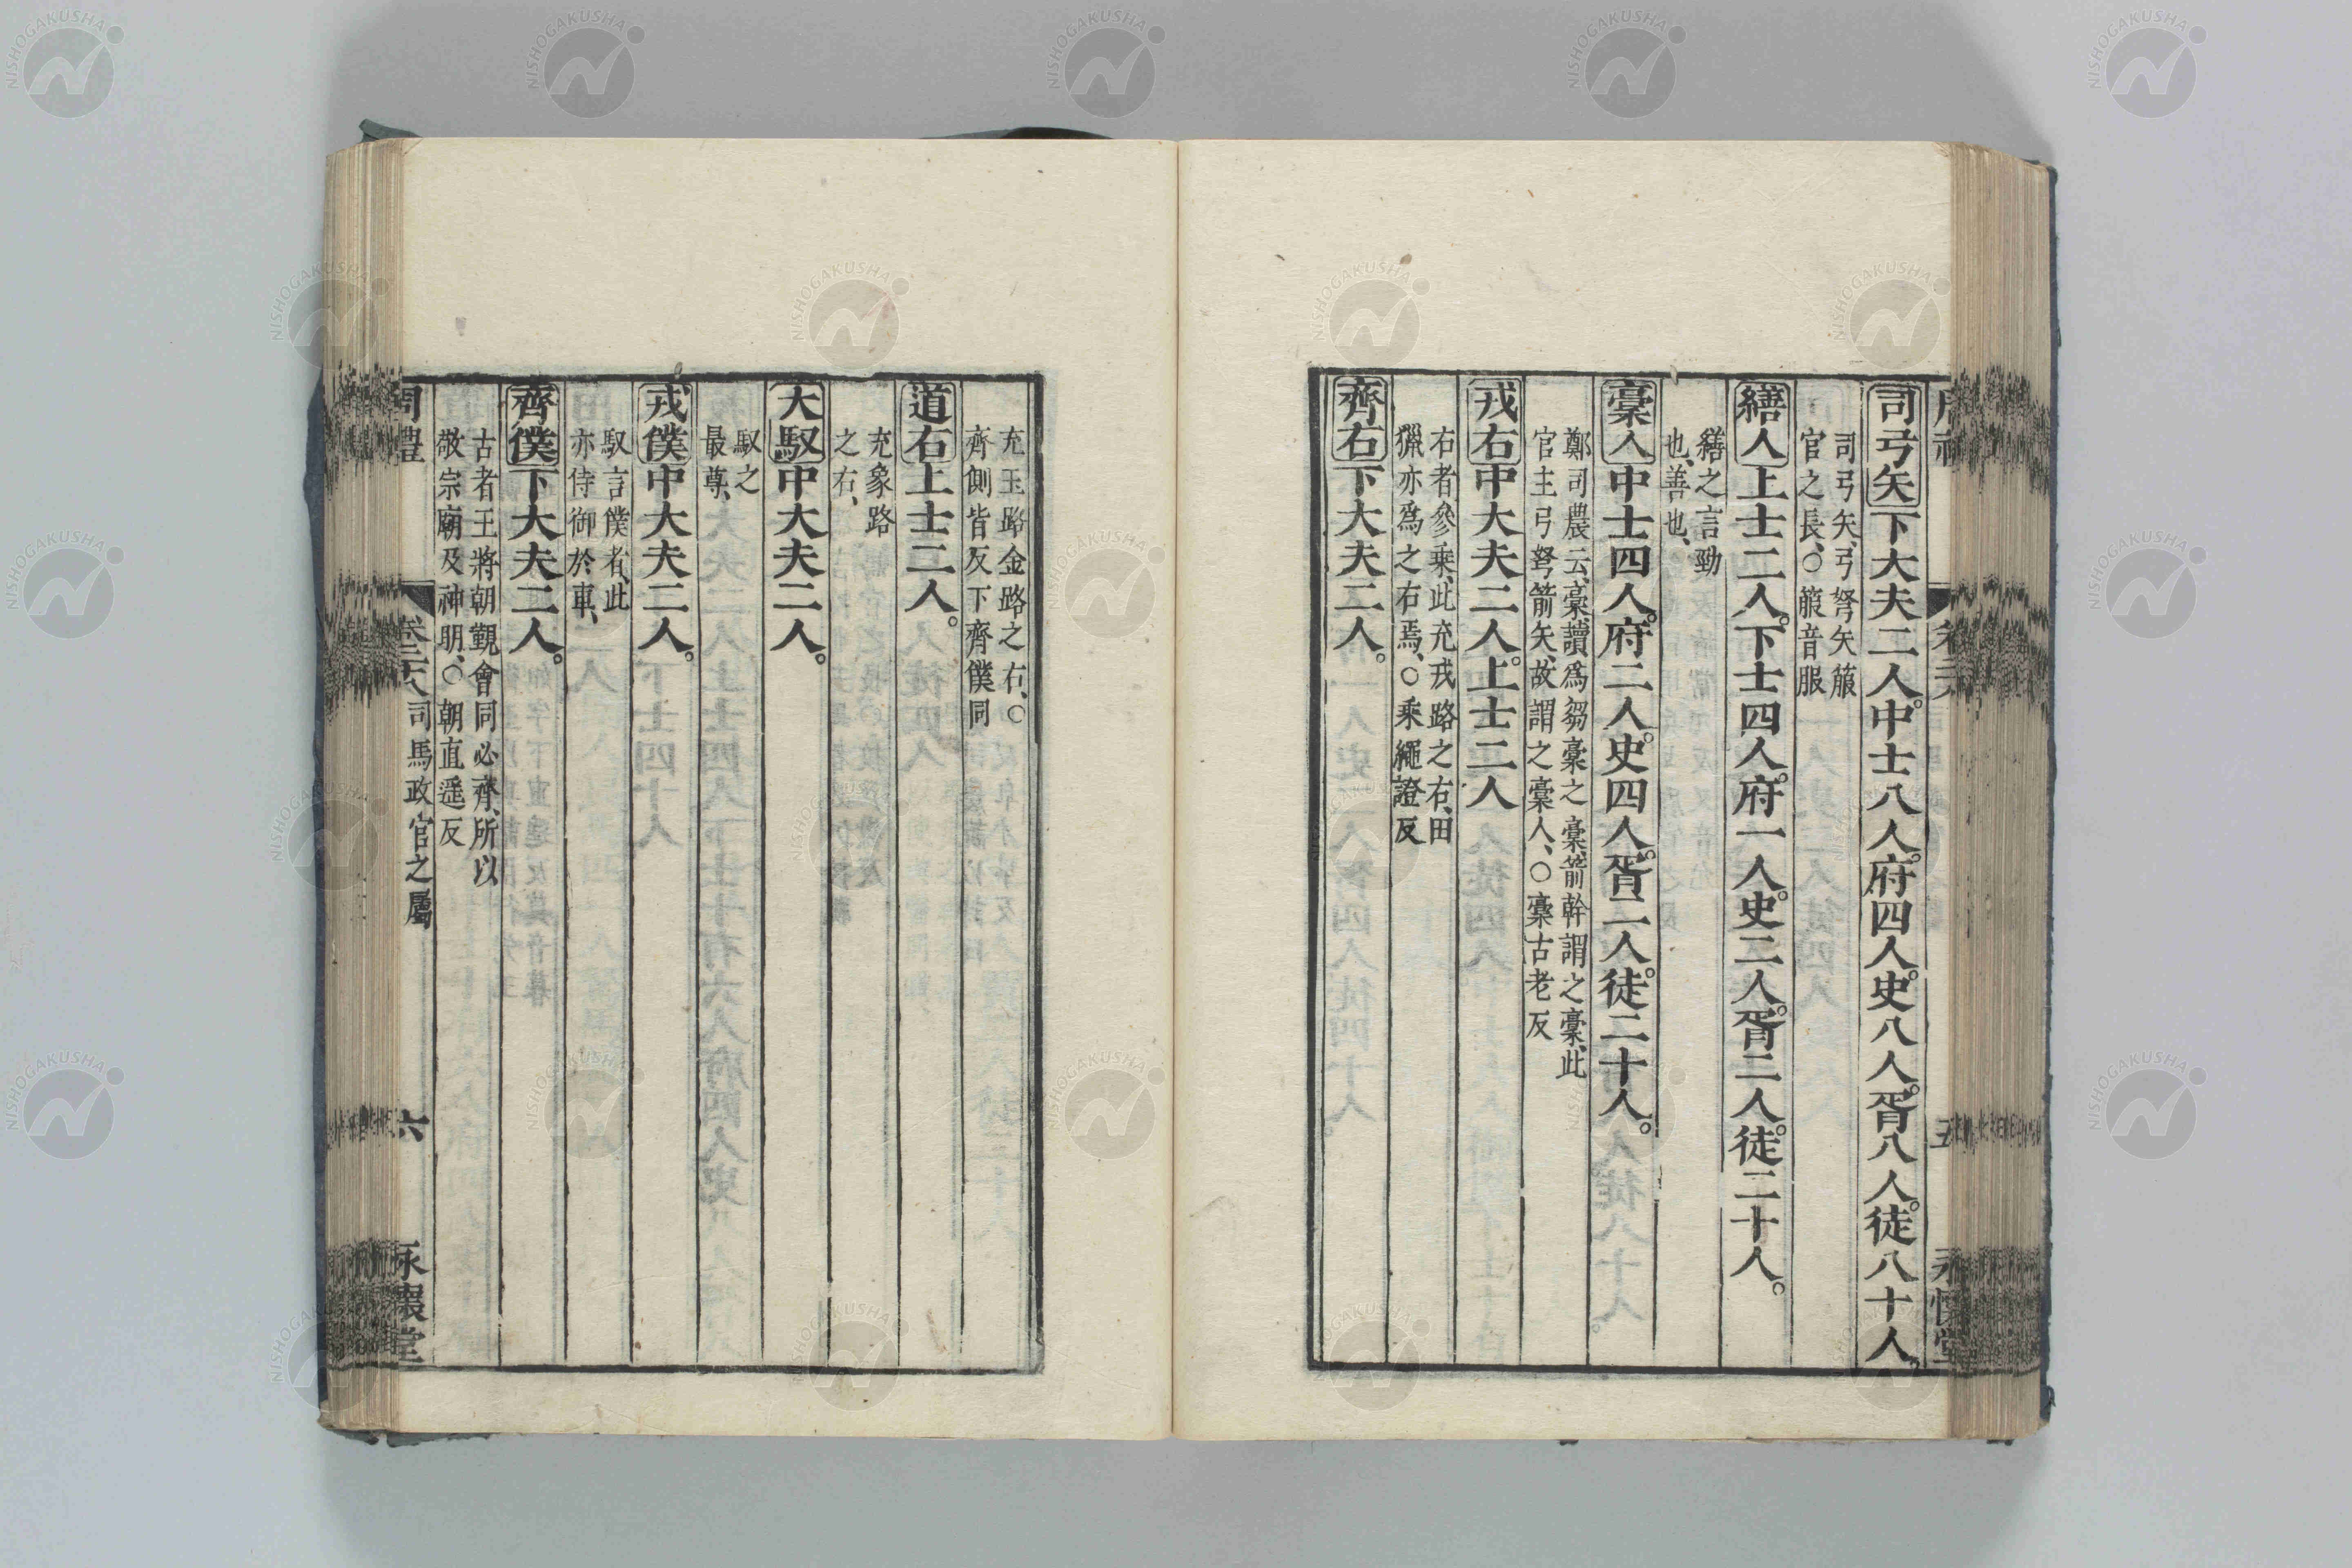 司弓矢下大夫二人。中士八人。府四人。史八人。胥八人。徒八十人。
司弓矢、弓弩矢箙
官之長、○箙音服
繕人上士二人。下士四人。府一人。史二人。胥二人。徒二十人。
繕之言勁
也、善也、
槀人中士四人。府二人。史四人。胥二人。徒二十人。
鄭司農云、槀讀爲芻槀之槀、箭幹謂之槀、此
官主弓弩箭矢、故謂之槀人、○槀古老反
戎右中大夫二人。上士二人
右者參乗、此充戎路之右、田
獵亦爲之右焉、○乘繩證反
齊右下大夫二人。
充玉路金路之右、○
齊側皆反下齊僕同
道右上士二人。
充象路
之右、
大馭中大夫二人。
馭之
最尊、
戎僕中大夫二人。
馭言僕者、此
亦侍御於車、
齊僕下大夫二人。
古者王將朝覲會同必齊、所以
敬宗廟及神明、○朝直遥反
周禮 卷二十八 司馬政官之屬 六 永懷堂
NISHOGAKUSHA